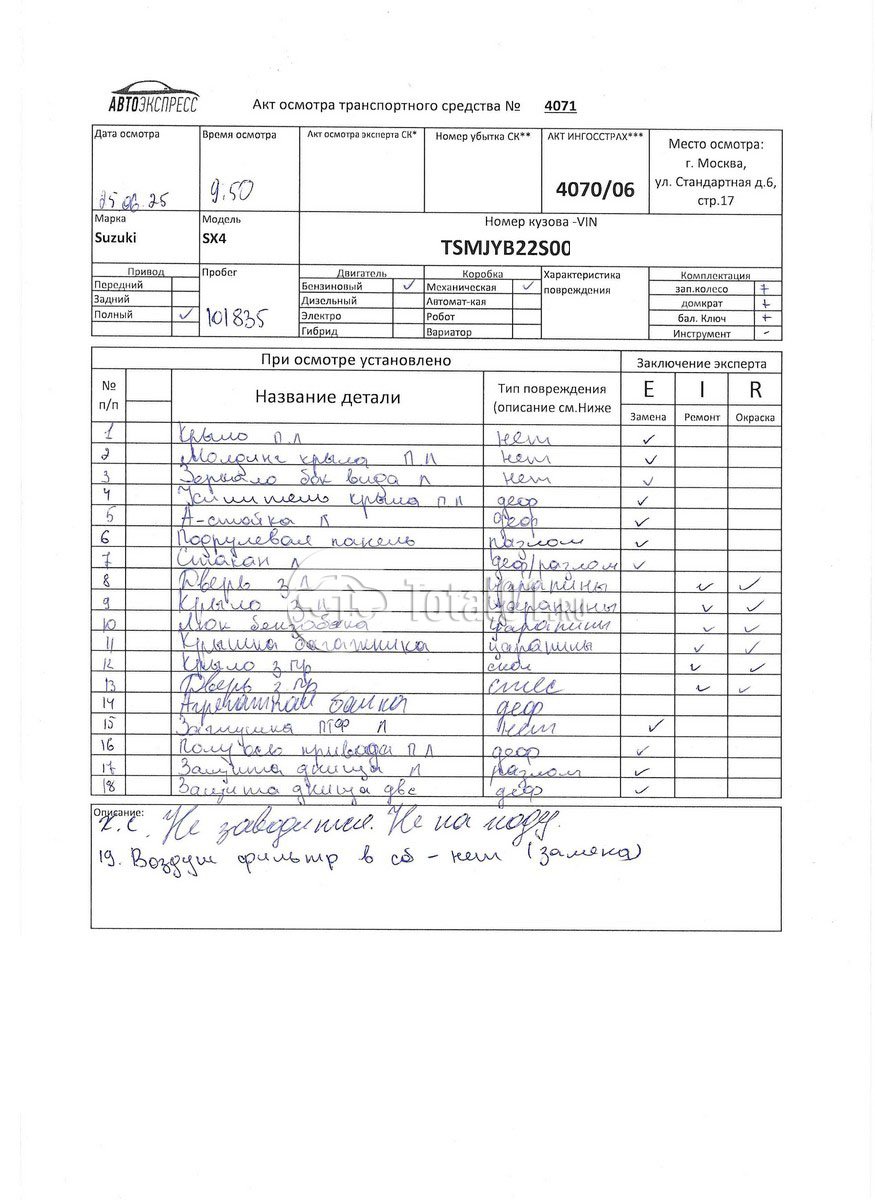 АВТОЭКСПРЕСС
Акт осмотра транспортного средства № 4071
Дата осмотра
25 06.25
Время осмотра
9.50
Акт осмотра эксперта СК*
Номер убытка СК**
АКТ ИНГОССТРАХ***
4070/06
Место осмотра:
г. Москва,
ул. Стандартная д.6,
стр.17
Марка
Suzuki
Модель
SX4
Номер кузова -VIN
TSMJYB22S00
Привод
Передний
Задний
Полный ✓
Пробег
101835
Двигатель
Бензиновый ✓
Дизельный
Электро
Гибрид
Коробка
Механическая ✓
Автомат-кая
Робот
Вариатор
Характеристика
повреждения
Комплектация
зап.колесо +
домкрат +
бал. Ключ +
Инструмент -
При осмотре установлено
Заключение эксперта
№
п/п
Название детали
Тип повреждения
(описание см.Ниже
E I R
Замена Ремонт Окраска
1 Крыло п л нет ✓
2 Молдинг крыла п л нет ✓
3 Зеркало бок вида л нет ✓
4 Усилитель крыла п л деф ✓
5 А-стойка л деф ✓
6 Подрулевая панель разлом ✓
7 Стакан л деф/разлом ✓
8 Дверь з л царапины ✓ ✓
9 Крыло з л царапины ✓ ✓
10 Люк бензобака царапины ✓ ✓
11 Крышка багажника царапины ✓ ✓
12 Крыло з пр скол ✓ ✓
13 Дверь з пр ✓ ✓
14 деф
15 Заглушка ПТФ л нет ✓
16 привода п л деф ✓
17 Защита днища л разлом ✓
18 Защита днища две деф ✓
TotalCar.RU
Описание:
Не заводится. Не на ходу.
19. Воздуш фильтр в сб - нет (замена)